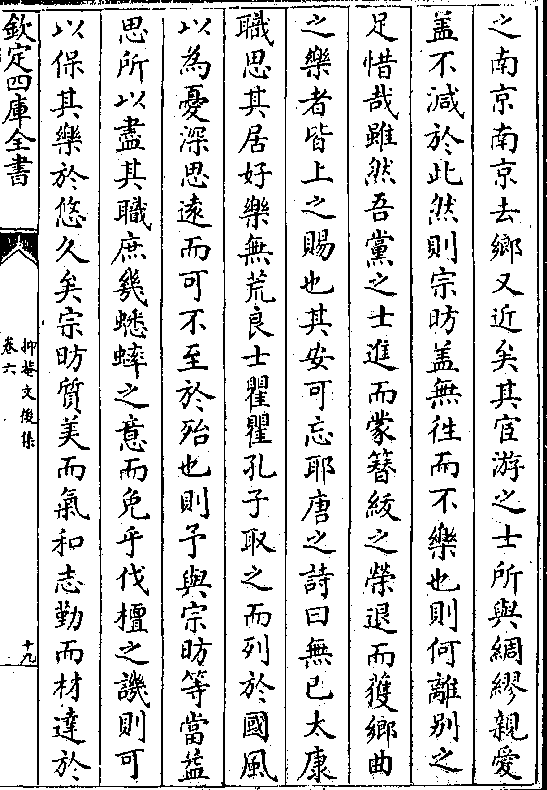 之南京南京去鄉又近矣其宦游之士所與綢繆親愛
盖不減於此然則宗昉盖無往而不樂也則何離别之
足惜哉雖然吾黨之士進而蒙簪紱之榮退而獲鄉曲
之樂者皆上之賜也其安可忘耶唐之詩曰無已太康
職思其居好樂無荒良士瞿瞿孔子取之而列於國風
以為憂深思逺而可不至於殆也則予與宗昉等當益
思所以盡其職庶幾蟋蟀之意而免乎伐檀之譏則可
以保其樂於悠久矣宗昉質美而氣和志勤而材達於
欽定四庫全書
抑菴文後集
卷六
十九